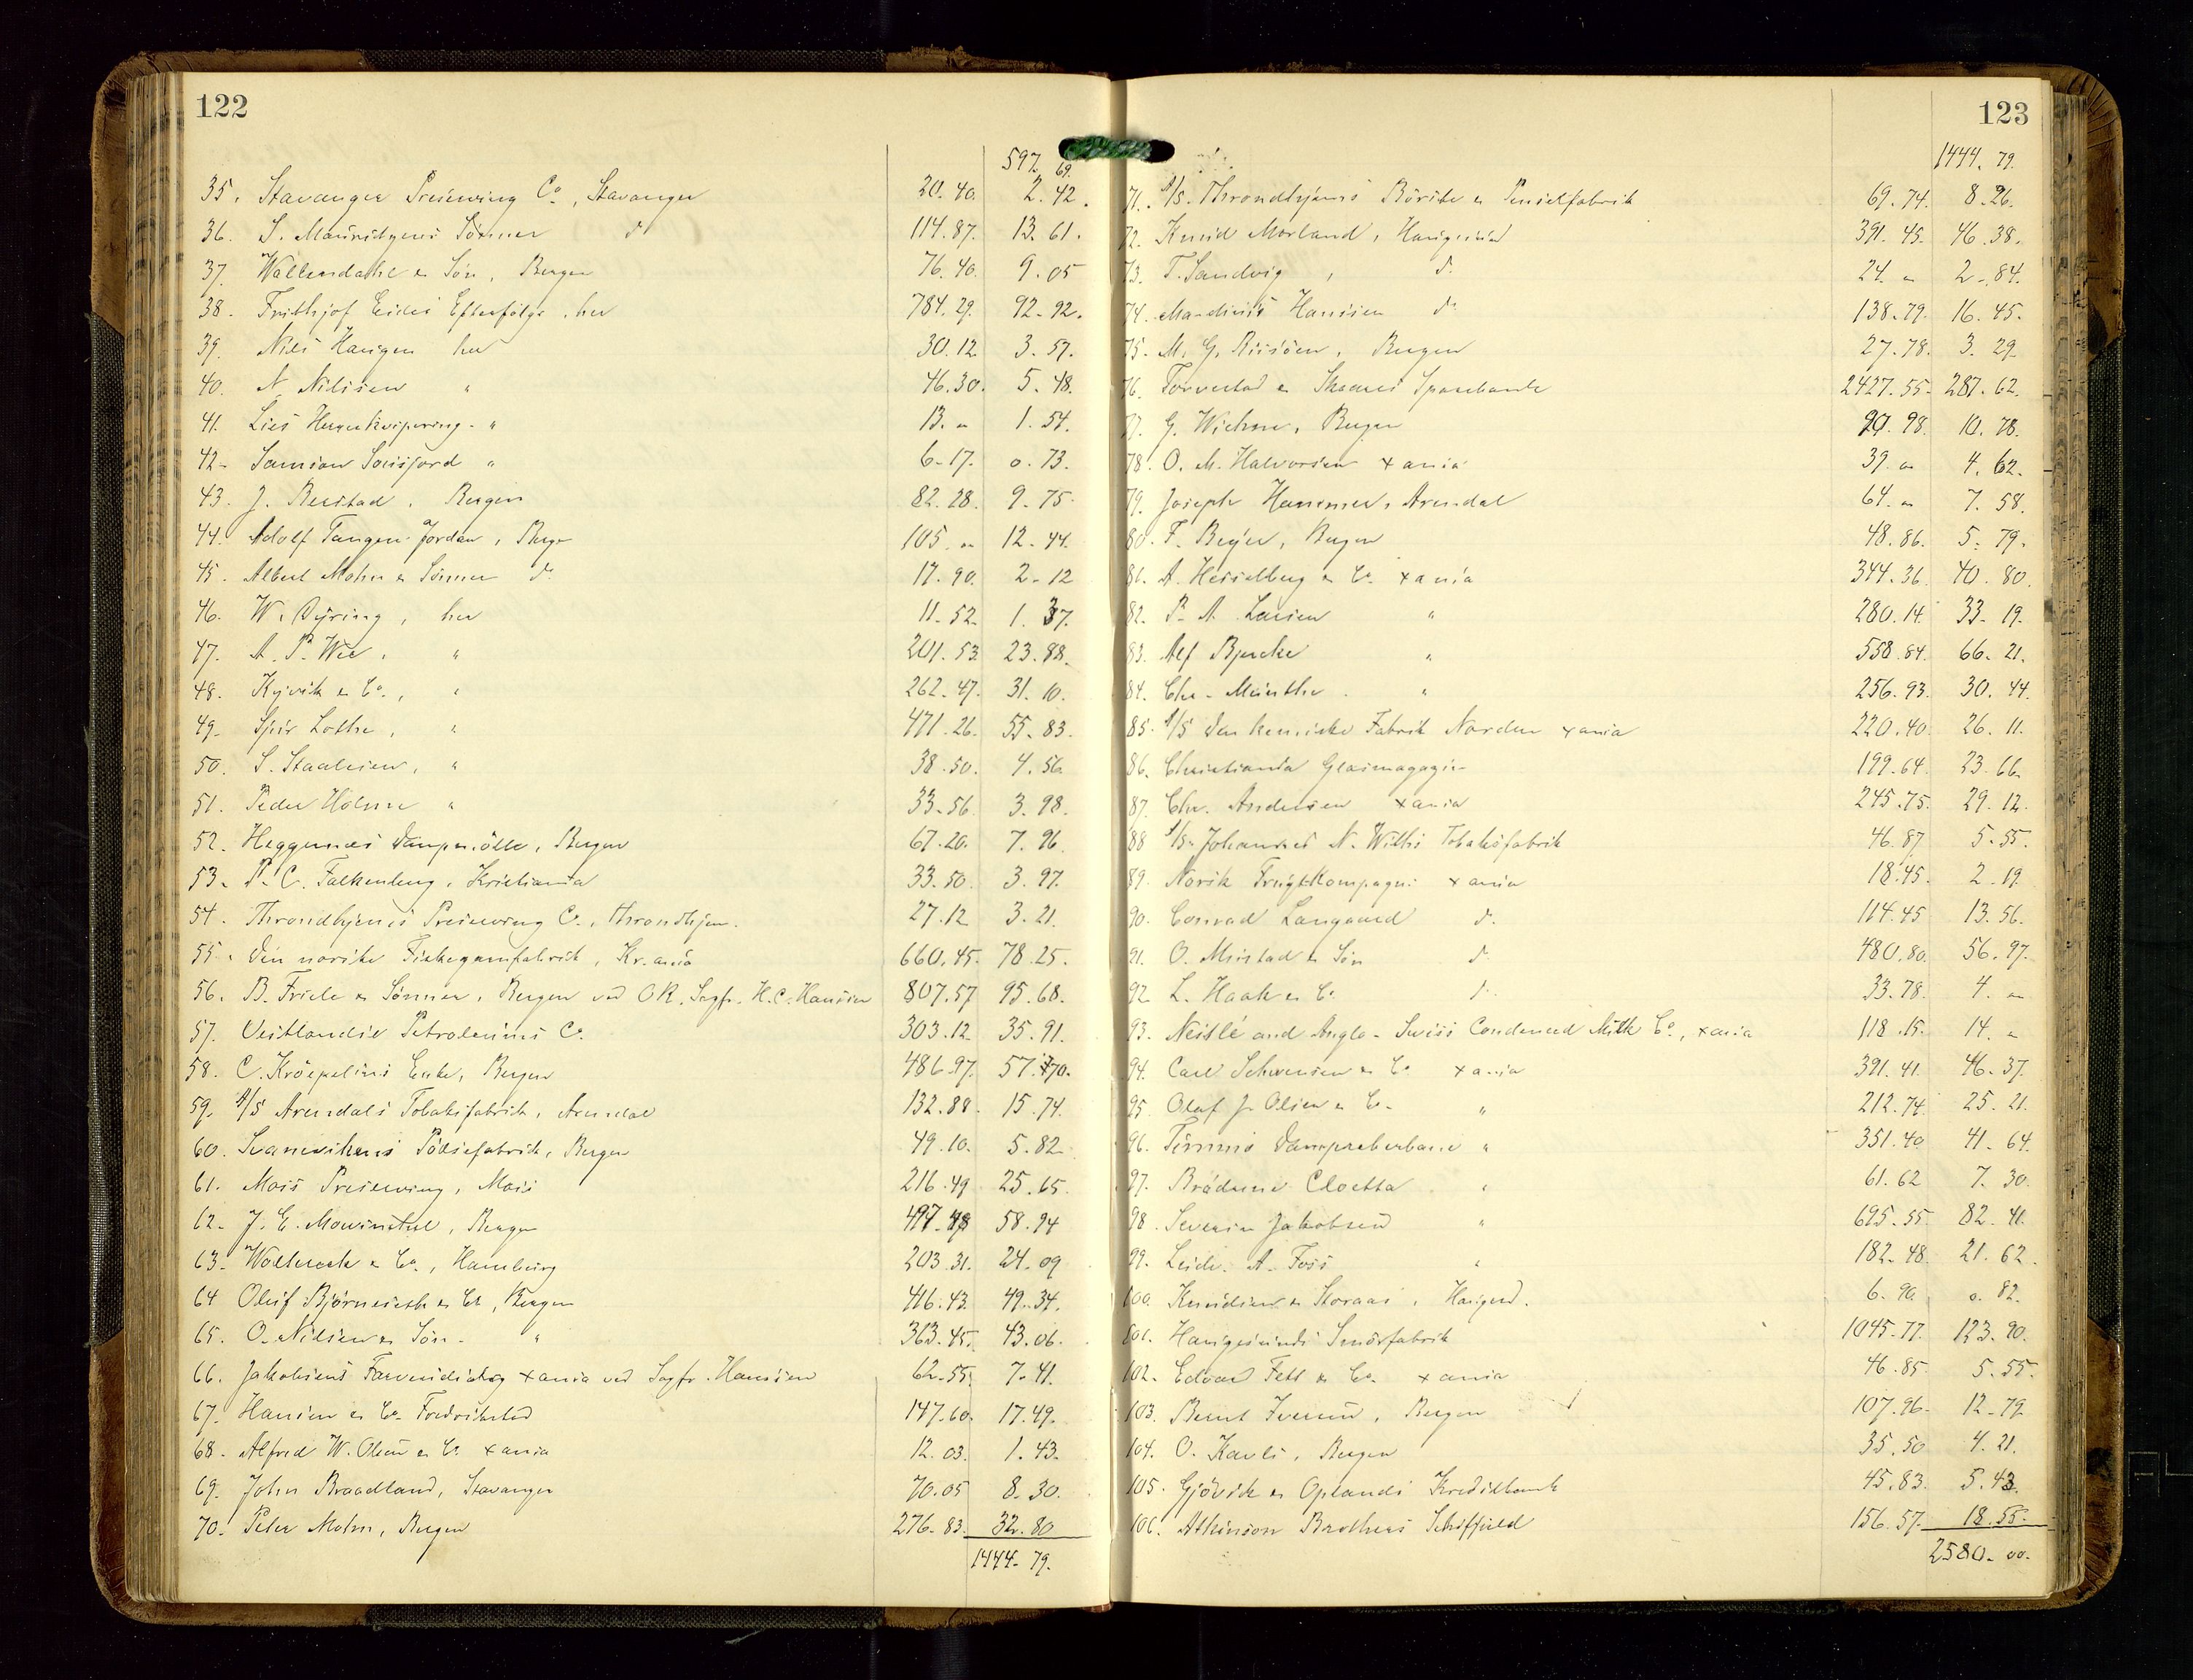 122
597. 69.
35. Stavanger Preserving Co, Stavanger 20.40. 2.42.
36. S. Mauritzens Sønner do 114.87. 13.61.
37. Wallendahl & Søn, Bergen 76.40. 9.05
38. Frithjof Eides Efterfølger, her 784.29. 92.92.
39. Nils Haugen her 30.12 3.57.
40. N. Nilssen " 46.30. 5.48.
41. Lies Herreekvipering " 13. " 1.54.
42. Samson " 6.17. 0.73.
43. J. Bustad, Bergen 82.28. 9.75.
44. Adolf Tangen Jordan, Bergen 105. " 12.44.
45. Albert Mohn & Sønner do 17.90. 2.12
46. W. Dyring, her 11.52. 1.37.
47. A. P. Wee, " 201.53. 23.88.
48. Kyvik & Co., " 262.47. 31.10.
49. Sjur Lothe, " 471.26. 55.83.
50. S. Staalesen, " 38.50. 4.56
51. Peder Holme " 33.56 3.98.
52. Heggernæs Dampmölle, Bergen 67.20. 7.96
53. P. C. Falkenberg, Kristiania 33.50. 3.97.
54. Throndhjems Preserving Co., Throndhjem. 27.12 3.21.
55. Den norske Fiskegarnfabrik, Kr.ania 660.45. 78.25.
56. B. Friele & Sønner, Bergen ved O.R. Sagfr. H.C. Hansen 807.57 95.68.
57. Vestlandske Petroleums Co. 303.12. 35.91.
58. C. Kröepeliens Enke, Bergen 486.97. 57.70.
59. A/S Arendals Tobaksfabrik, Arendal 132.88. 15.74.
60. Svanevikens Pölsefabrik, Bergen 49.10. 5.82
61. Moss Preserving, Moss 216.49 25.65.
62. J. E. Mowinckel, Bergen 497.48 58.94
63. & Co., Hamburg 203.31. 24.09
64 Oluf Bjørneseth & Co, Bergen 416.43. 49.34.
65. O. Nilsen & Søn " 363.45. 43.06.
66. Jakobsens Farvehandel xania ved Sagfr. Hansen 62.55. 7.41.
67. Hansen & Co. Fredrikstad 147.60. 17.49.
68. Alfred W. Olsen & Co xania 12.03. 1.43.
69. John Braadland, Stavanger 70.05 8.30.
70. Peter Mohn, Bergen 276.83. 32.80
1444.79.
123
1444.79.
71. A/S. Throndhjems Börste & Penselfabrik 69.74. 8.26.
72. Knud Morland, Haugesund 391.45. 46.38.
73. T. Sandvig, do 24. " 2.84.
74. Mandius Hansen do 138.79. 16.45.
75. M. G. Riisöen, Bergen 27.78. 3.29
76. Torvestad & Skaares Sparebank 2427.55. 287.62.
77. G. Wiehme, Bergen 90.98. 10.78.
78. O. M. Halvorsen xania 39. " 4.62.
79. Joseph Hammer, Arendal 64. " 7.58.
80. F. Beyer, Bergen 48.86. 5.79.
81. A. Hesselberg & Co. xania 344.36. 40.80.
82. P. A. Larsen " 280.14. 33.19.
83. Alf Bjercke " 558.84. 66.21.
84. Chr. Münther " 256.93. 30.44.
85. A/S Den kemiske Fabrik Norden xania 220.40. 26.11.
86. Christiania Glasmagazin 199.64. 23.66.
87. Chr. Andersen xania 245.75. 29.12.
88 A/S. Johannes N. Withs Tobaksfabrik 46.87 5.55.
89. Norsk Frugtkompagni xania 18.45. 2.19.
90. Conrad Langaard do 114.45 13.56.
91. O. Mustad & Søn do 480.80. 56.97.
92. L. Haak & Co do 33.78. 4. "
93. Nestlé and Anglo-Swiss Condensed Milk Co., xania 118.15. 14. "
94. Carl Schwensen & Co xania 391.41. 46.37.
95. Olaf J. Olsen & Co. " 212.74. 25.21.
96. Tömmes Dampræberbane " 351.40 41.64.
97. Brödrene Cloetta " 61.62 7.30.
98. Severin Jakobsen " 695.55. 82.41.
99. A. Foss " 182.48. 21.62.
100. Knudsen & Storaas, Haugesd. 6.90. 0.82.
101. Haugesunds Smörfabrik 1045.77. 123.90.
102. Edvard Fett & Co. xania 46.85. 5.55.
103. Bernt Iversen, Bergen 107.96. 12.79
104. O. Kavli, Bergen 35.50 4.21.
105. Gjövik & Oplands Kreditbank 45.83. 5.43.
106. Atkinson Brothers Scheffield 156.57. 18.55.
2580.00.